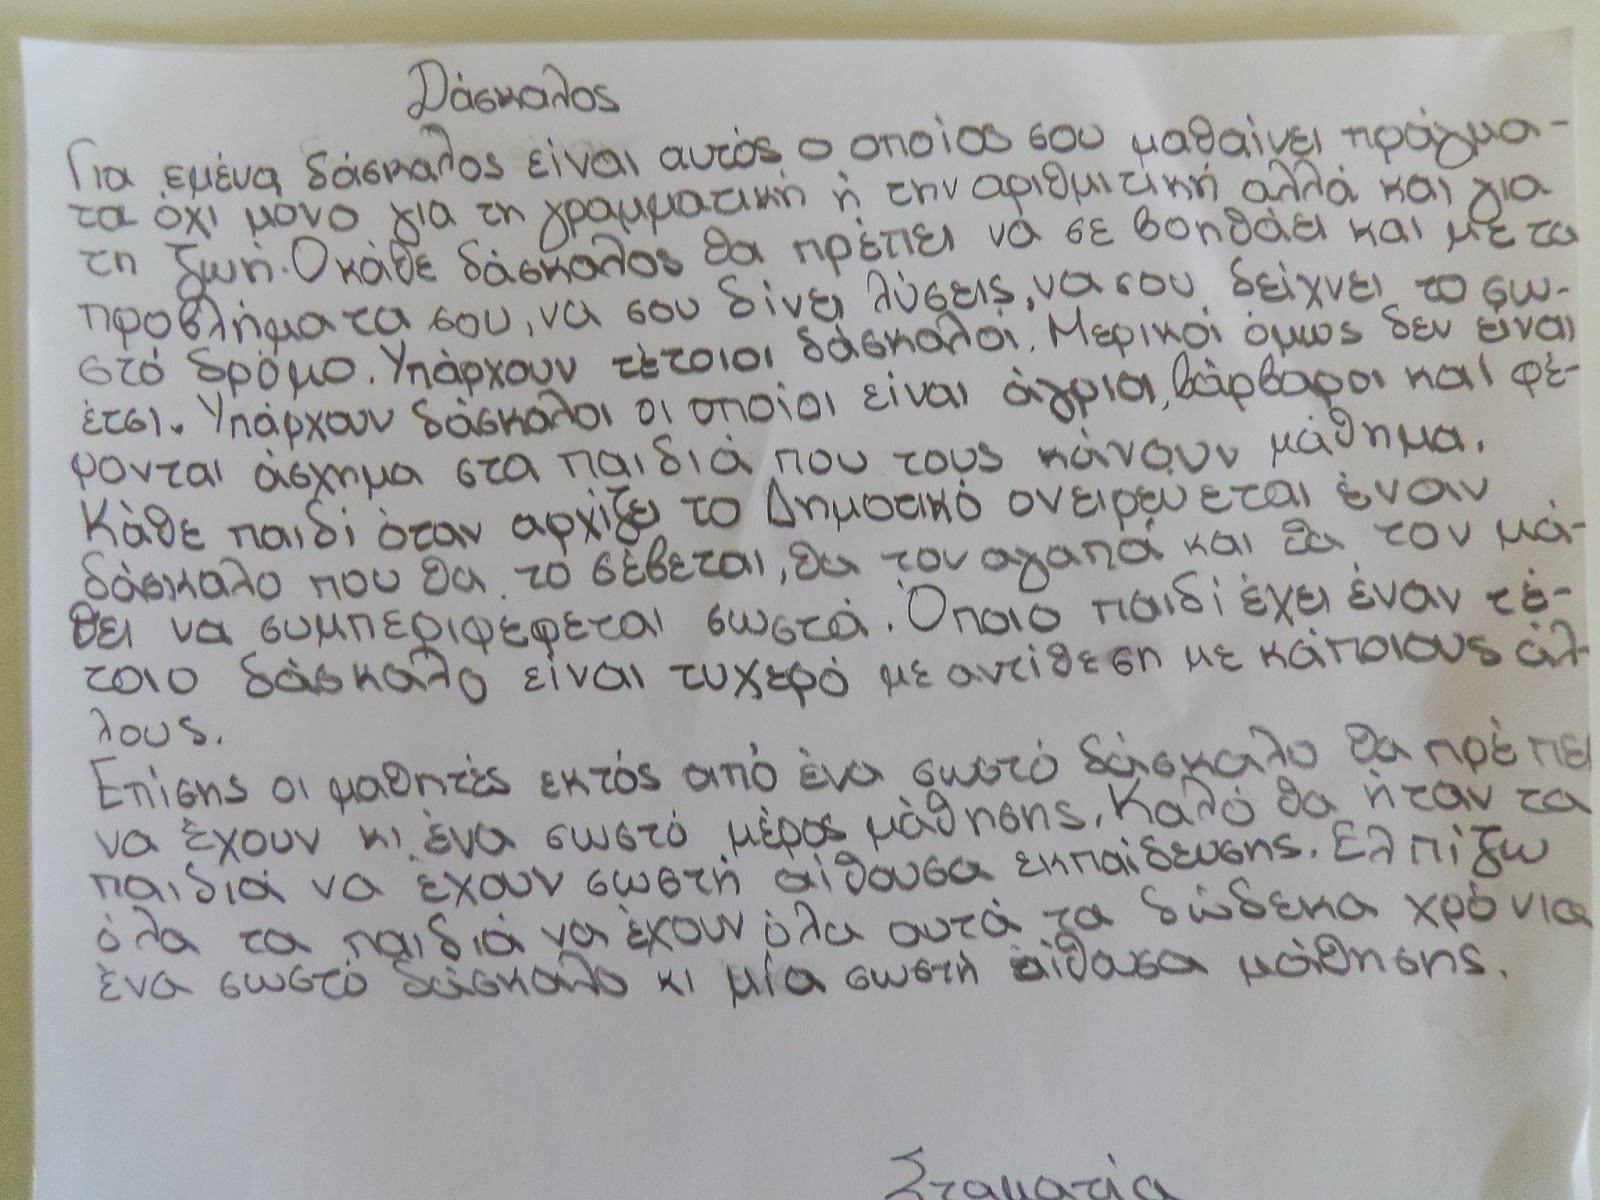 Δάσκαλος
Για εμένα δάσκαλος είναι αυτός ο οποίος σου μαθαίνει πράγμα-
τα όχι μόνο για τη γραμματική ή την αριθμιτική αλλά και για
τη ζωή. Ο κάθε δάσκαλος θα πρέπει νά σε βοηθάει και με τα
προβλήματα σου, να σου δίνει λύσεις, να σου δείχνει το σω-
στό δρόμο. Υπάρχουν τέτοιοι δάσκαλοι. Μερικοί όμως δεν είναι
έτσι. Υπάρχουν δάσκαλοι οι οποίοι είναι άγριοι, βάρβαροι και φέ-
ρονται άσχημα στα παιδιά που τους κάνουν μάθημα.
Κάθε παιδί όταν αρχίζει το Δημοτικό ονειρεύεται έναν
δάσκαλο που θα το σέβεται, θα τον αγαπά και θα τον μά-
θει να συμπεριφέρεται σωστά. Όποιο παιδί έχει έναν τέ-
τοιο δάσκαλο είναι τυχερό με αντίθεση με κάποιους άλ-
λους.
Επίσης οι μαθητές εκτός από ένα σωστό δάσκαλο θα πρέπει
να έχουν κι ένα σωστό μέρος μάθησης. Καλό θα ήταν τα
παιδιά να έχουν σωστή αίθουσα εκπαίδευσης. Ελπίζω
όλα τα παιδιά να έχουν όλα αυτά τα δώδεκα χρόνια
ένα σωστό δάσκαλο κι μία σωστή αίθασα μάθησης.
Σταματία